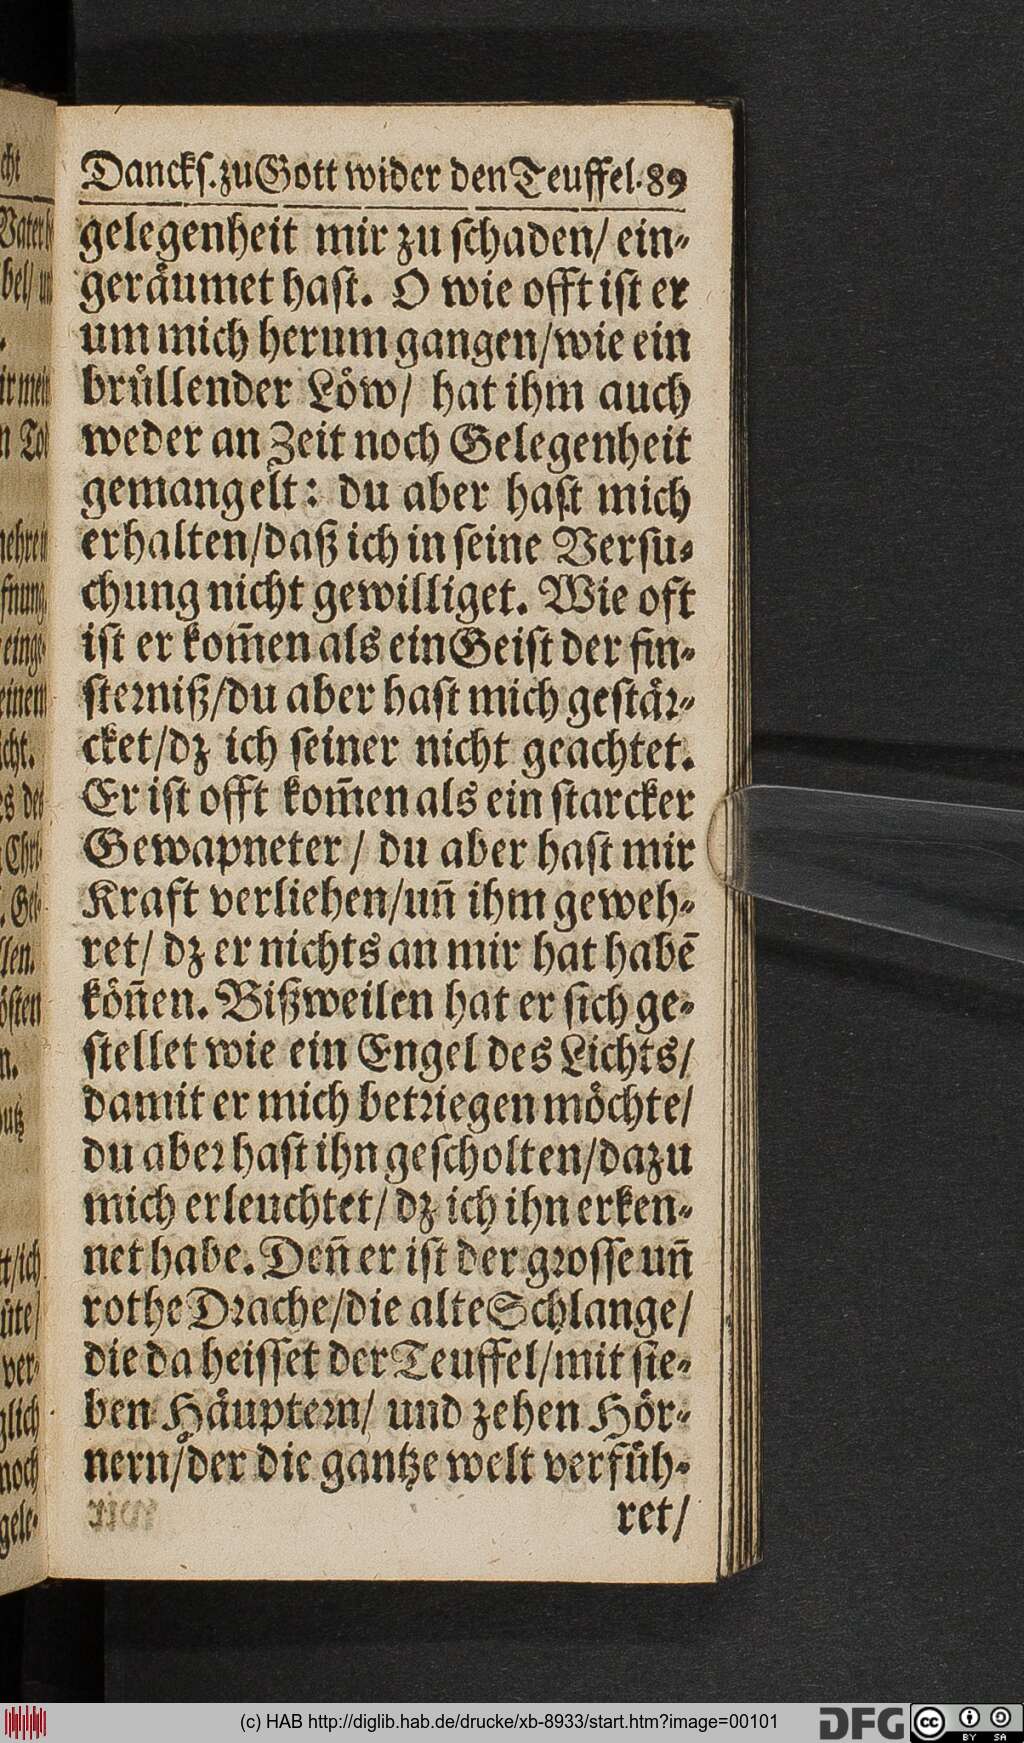 Dancks. zu Gott wider den Teuffel. 89
gelegenheit mir zu schaden/ ein-
geräumet hast. O wie offt ist er
um mich herum gangen/wie ein
brüllender Löw/ hat ihm auch
weder an Zeit noch Gelegenheit
gemangelt: du aber hast mich
erhalten/daß ich in seine Versu-
chung nicht gewilliget. Wie oft
ist er kom̃en als ein Geist der fin-
sterniß/du aber hast mich gestär-
cket/dz ich seiner nicht geachtet.
Er ist offt kom̃en als ein starcker
Gewapneter / du aber hast mir
Kraft verliehen/uñ ihm geweh-
ret/ dz er nichts an mir hat habẽ
köñen. Bißweilen hat er sich ge-
stellet wie ein Engel des Lichts/
damit er mich betriegen möchte/
du aber hast ihn gescholten/dazu
mich erleuchtet/ dz ich ihn erken-
net habe. Deñ er ist der grosse uñ
rothe Drache/die alte Schlange/
die da heisset der Teuffel/mit sie-
ben Häuptern/ und zehen Hör-
nern/der die gantze welt verfüh-
ret/
(c) HAB http://diglib.hab.de/drucke/xb-8933/start.htm?image=00101
DFG
cc BY SA